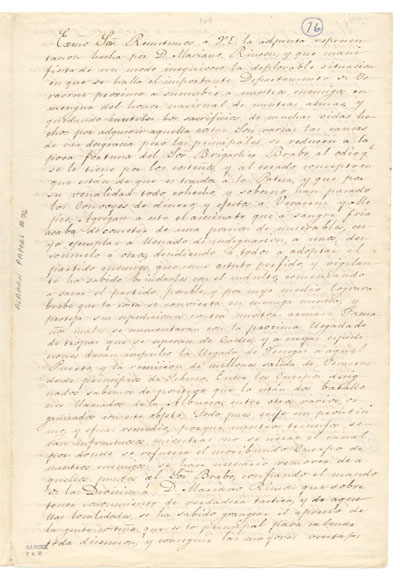 76
Exmo Sor Remitimos a V.E. la adjunta represen
tacion hecha por D. Mariano Rincon, y que mani
fiesta de un modo inequivoco la deplorable situacion
en que se halla el importante Departamento de Ve
racruz proximo a sucumbir a nuestros enemigos en
mengua del honor nacional de nuestras armas, y
quedando inutiles los sacrificios de muchas vidas he
chos por adquirir aquella costa. Son varias las causas
de esta desgracia pero las principales se reducen a la
poca fortuna del Sor Brigadier Brabo, al odio q.e
se le tiene por los costeños, y al errado concepto en
que estan de que es traidor a la Patria, y que por
su venalidad todo cohecho, y soborno, han pasado
los Convoyes de dinero, y efectos a Veracruz y Me
jico. Agregan a esto el asesinato que a sangre fria
acaba de cometer de una porcion de miserables, cu
yo ejemplar a llenado de indignacion a unos, des
consuelo a otros, decidiendo a todos a adoptar el
partido enemigo, que como astuto, perfido, y vigilante
les ha sabido brindarles con el indulto, comenzando
a sacar el partido posible, y por cuyo medio lograra
breve que la costa se convierta en enemiga nuestra, y
proteja sus expediciones contra nuestras armas. Tama
ños males se aumentaran con la proxima llegada
de tropas que se esperan de Cadiz, y a cuyas espedi
ciones daran impulso la llegada de
Puerto, y la remision de millones salida de Veracruz
desde principios de Febrero. Entre los Cuerpos desig
nados sabemos de positivo que lo estan dos batallo
nes llamados de la Albuera, entre otros varios, or
ganizados con este objeto. Todo pues es de un peso tan
mo, y sin remedio, porque nuestros triunfos se
ran infructuosos mientras no se cierre el canal
por donde se refuerza el moribundo Cuerpo de
nuestros enemigos. Se hace necesario remover de a
quellos puntos al Sor Brabo, confiando el mando
de la Provincia a D. Mariano Rincon que sobre
tener conocimiento de verdadera tactica, y de aque
llas localidades, se ha sabido grangear el aprecio de
la gente costeña que es lo principal para calmar
toda disension, y conseguir las mayores ventajas
ALAMAN PAPERS # 76
GARCIA